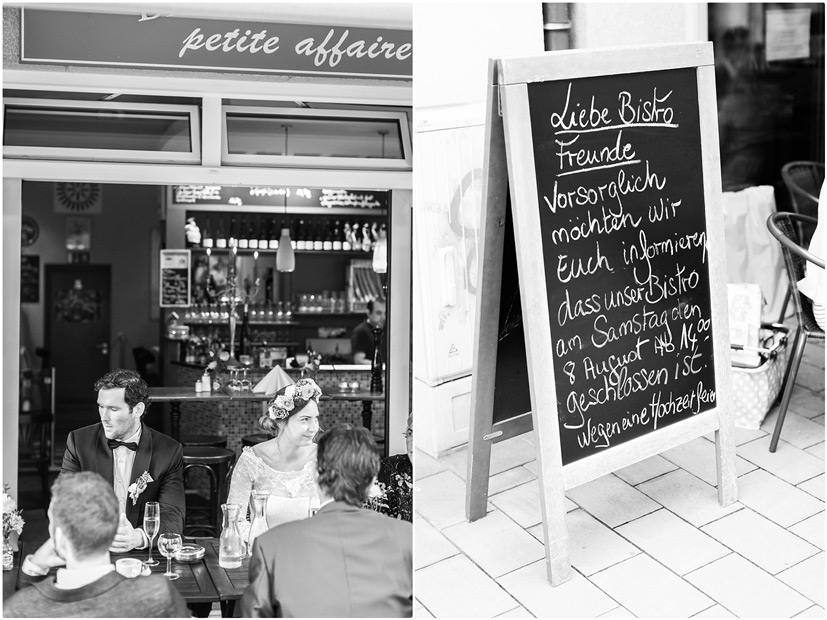 petite affaire
Liebe Bistro
Freunde
Vorsorglich
möchten wir
Euch informieren
dass unser Bistro
am Samstag den
8 August AB 14,00
geschlossen ist.
wegen eine Hochzeitfeier